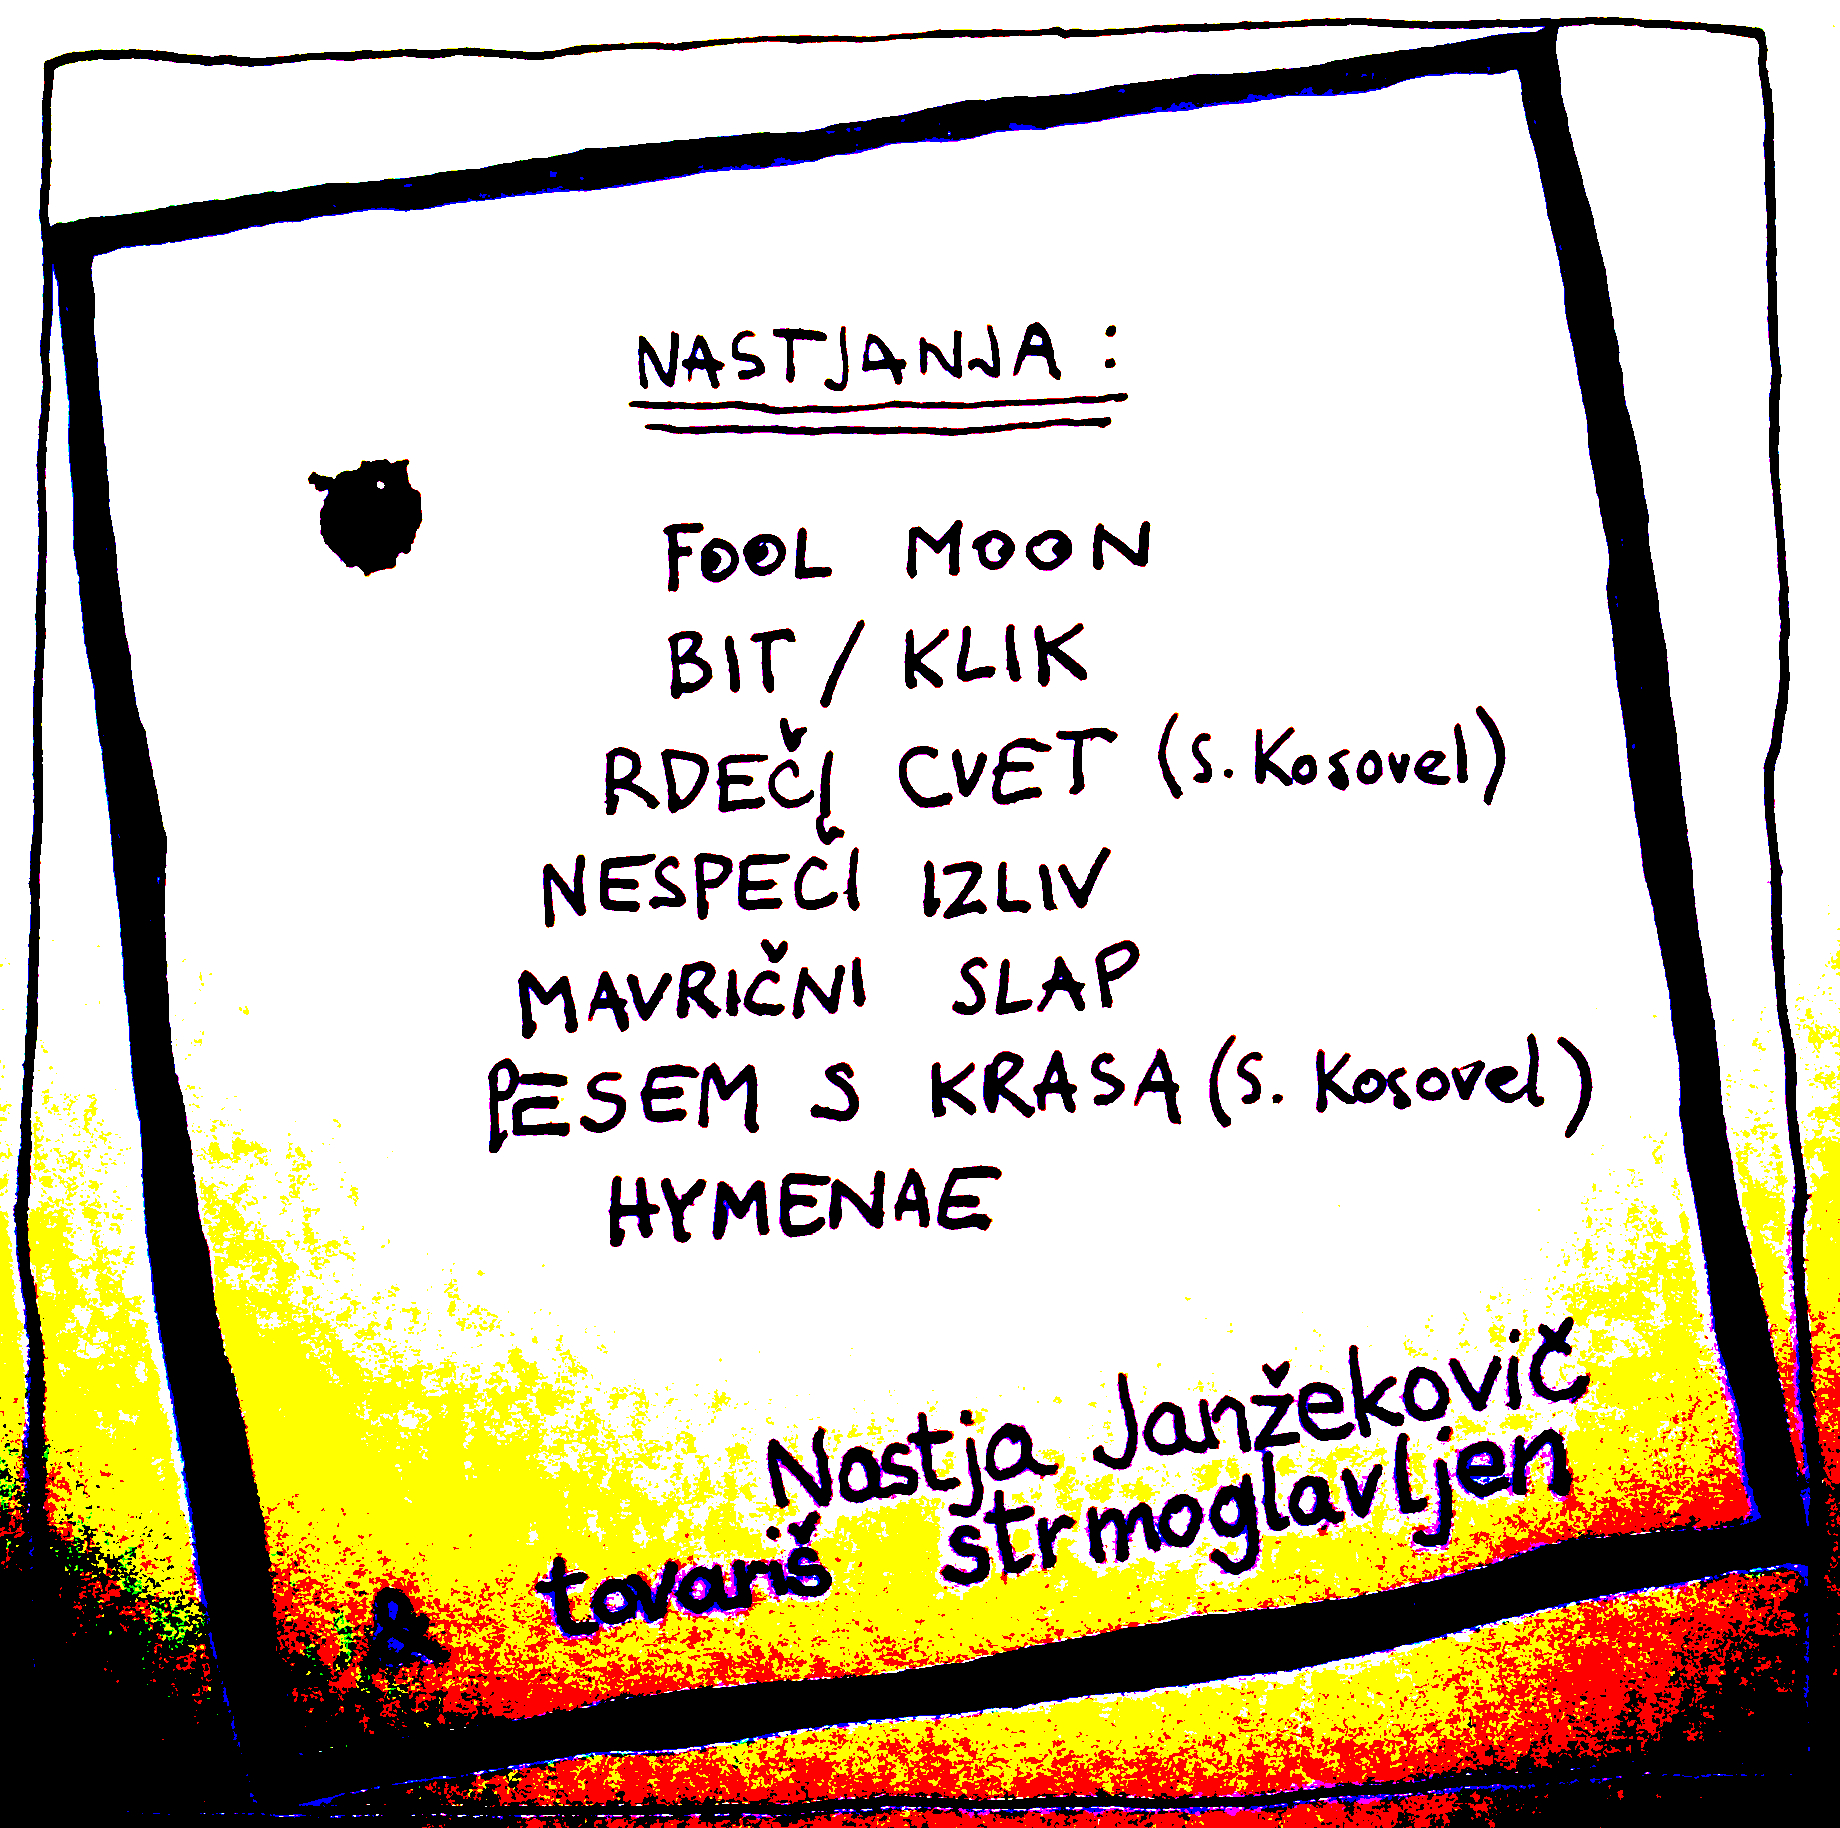 NASTJANJA :
FOOL MOON
BIT / KLIK
RDEČI CVET (S. Kosovel)
NESPEČI IZLIV
MAVRIČNI SLAP
PESEM S KRASA (S. Kosovel)
HYMENAE
Nastja Janžekovič
& tovariš strmoglavljen